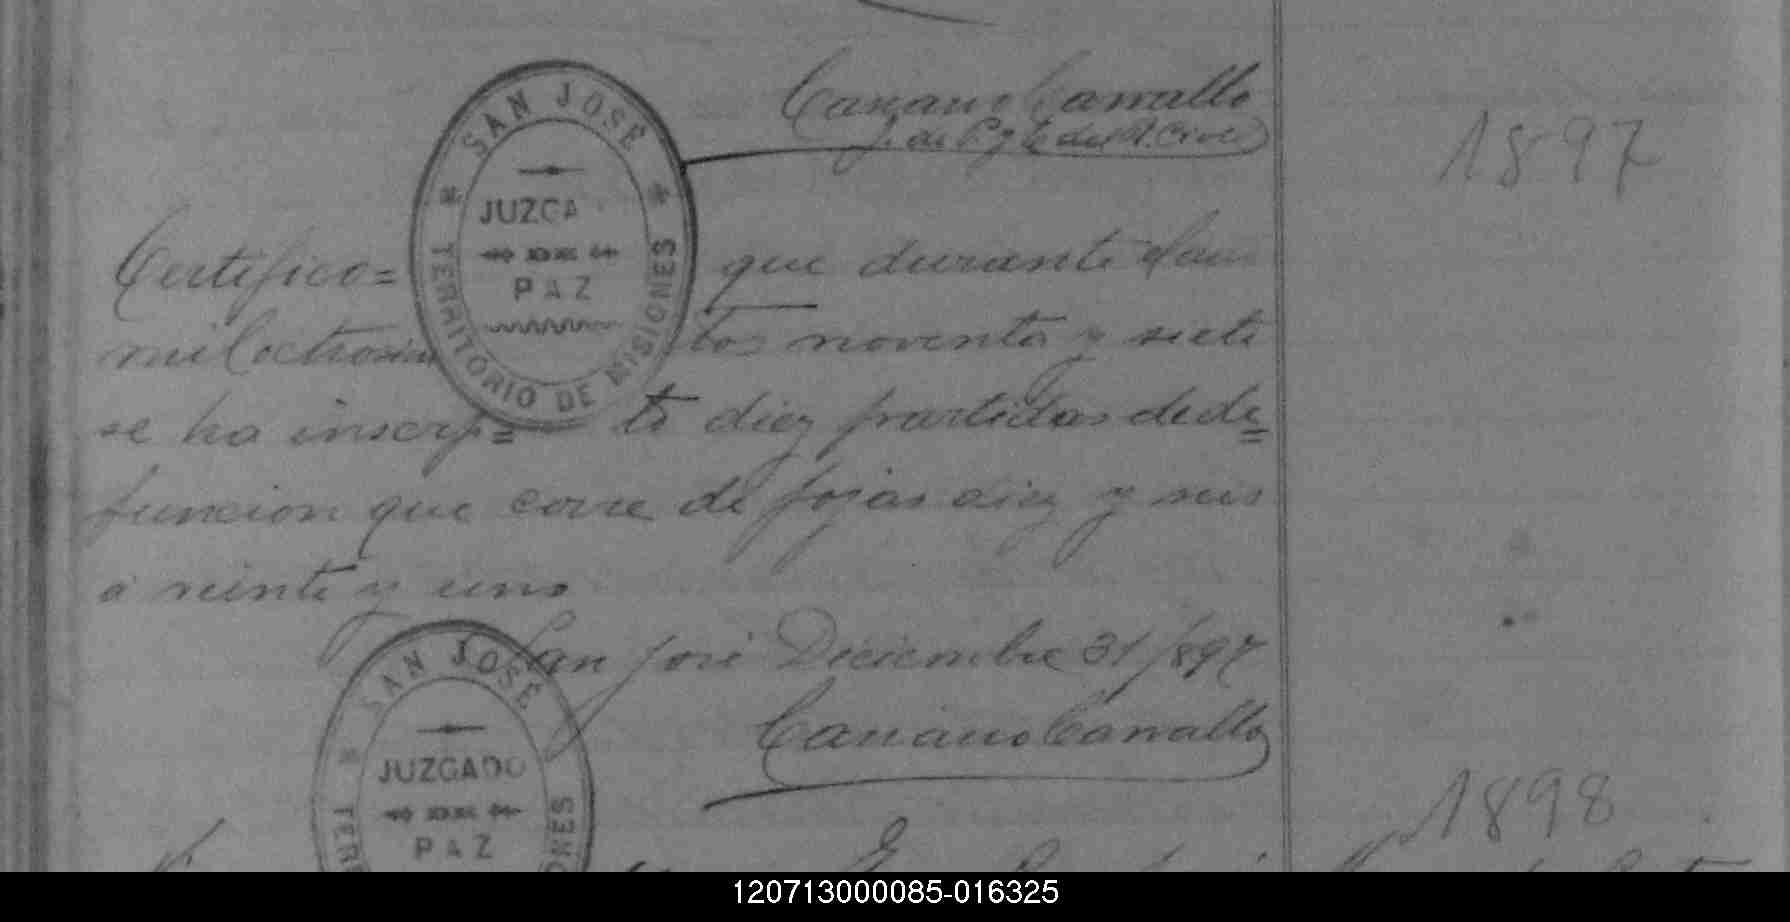 Casiano Carvallo
J. de P. y E. del R. Civil
1897
SAN JOSÉ
JUZGA
PAZ
TERRITORIO DE MISIONES
Certifico= que durante
mil ochosien tos noventa y siete
se ha inscrip= to diez partidas de de=
funcion que corre de fojas diez y seis
a veinte y uno
San José Diciembre 31/897
Casiano Carvallo
SAN JOSÉ
JUZGADO
PAZ
1898
120713000085-016325